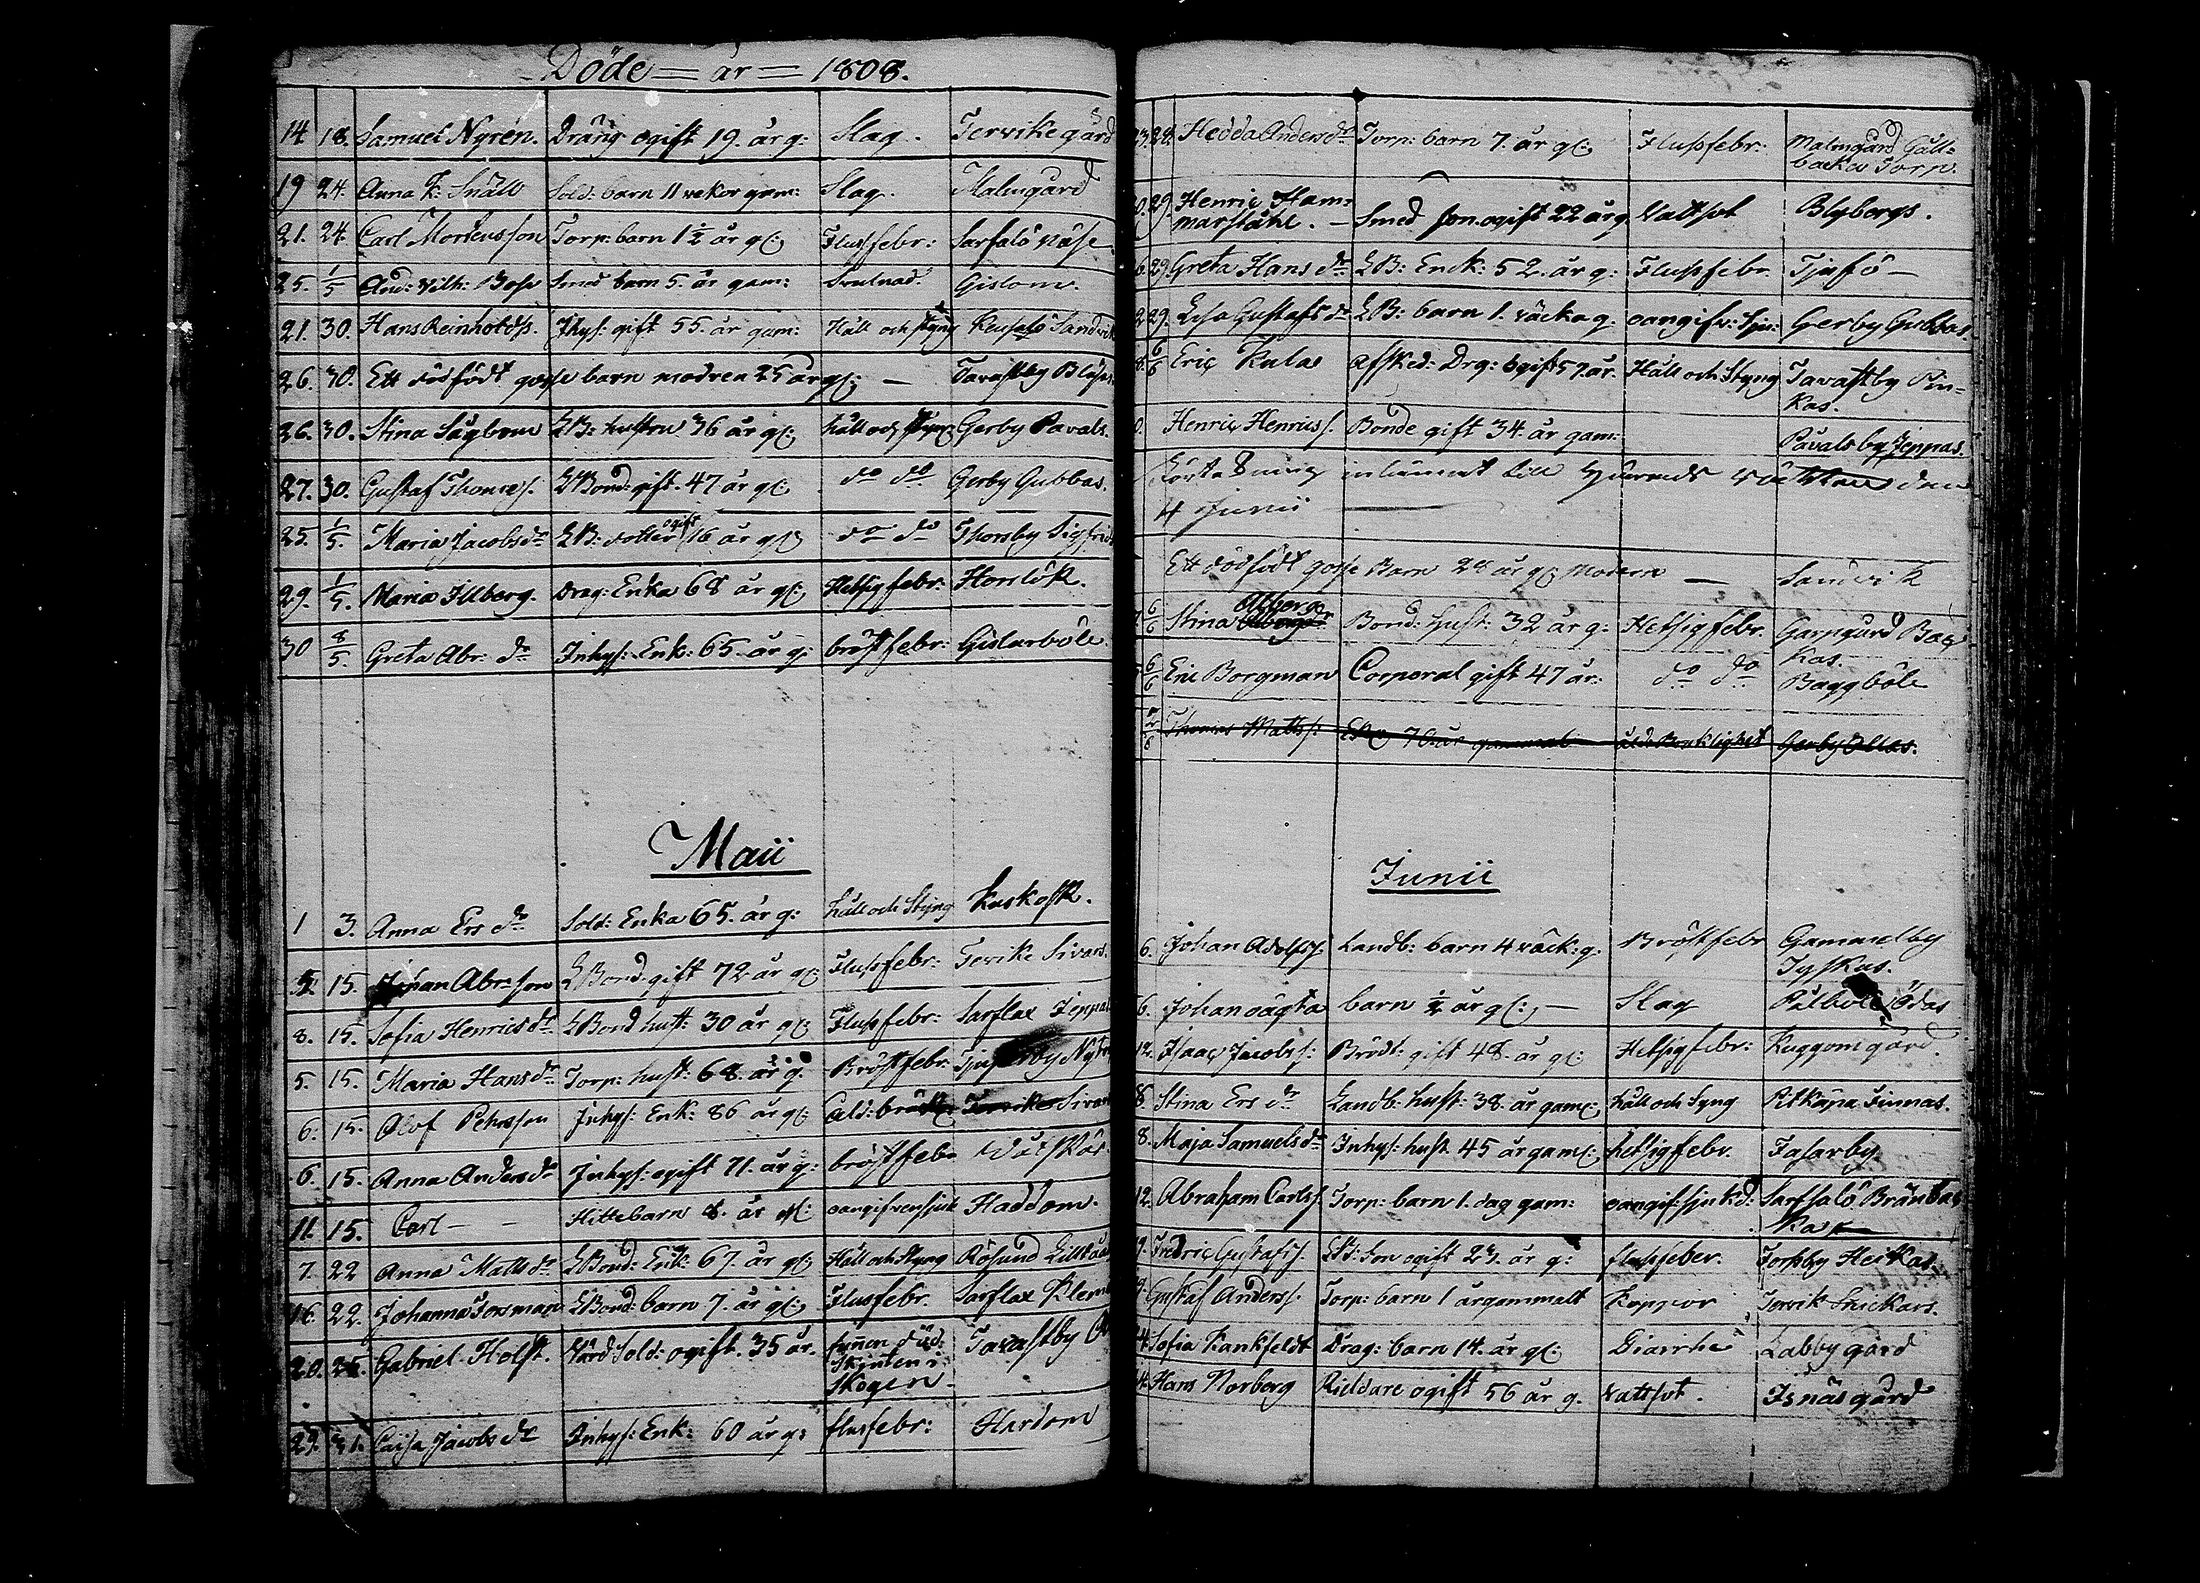 Döde = år = 1808.
14 18. Samuel Nyrén. Dräng ogift 19. år g: Slag. Tervike gård
19 24. Anna K: Snäll Sold: barn 11 vekor gam: Slag. Malmgård
21. 24. Carl Mortensson Torp: barn 1 1/2 år gl: Flussfebr: Sarfalö näse
25. 1/5 And: Vilh: Bose Smed barn 5. år gam: Svulnad. Gislom.
21. 30. Hans Reinholds. Jhys: gift 55. år gam: Håll och styng Keusalö Sandvik
26. 30. Ett dödfödt gosse barn modren 25 år gl: — Tavastby
26. 30. Stina Sågbom EB: hustru 36 år gl: håll och styng Gerby Pavals.
27. 30. Gustaf Thomæs. EBond: gift. 47 år gl: do do Gerby Gubbas.
25. 1/5. Maria Jacobs dr EB: dotter ogift 16 år gl: do do Thorsby Sigfrids
29. 1/5. Maria Illberg. Drag: Enka 68 år gl: Hetsigfebr: Horslök.
30 8/5. Greta Abr: dr Inhys: Enk: 65 år g: bröstfebr: Gislarböle
Maii
1 3. Anna Ers dr Sold: Enka 65. år g: håll och Styng Kuskosk.
5. 15. Johan Abr:son EBond: gift 72 år gl: Flussfebr: Tervike Sivars.
8. 15. Sofia Henrics dr EBond hust: 30 år gl: Flussfebr: Sarflax Jeppas
5. 15. Maria Hans dr Torp: hust: 68. år g. Bröstfebr.
6. 15. Olof Pehrsson Inhys: Enk: 86 år gl: Ald: bräckl: Tervike Sivars
6. 15. Anna Anders dr Inhys: ogift 71. år g: bröstfebr Våtskär.
11. 15. Carl — — Hittebarn 8. år gl: oangifven sjuk Haddom.
7. 22 Anna Matts dr EBond: Enk: 67. år gl: Håll och Styng Rösund Lillbåda
16. 22. Johanna Forsman EBond: barn 7. år gl: Flusfebr. Sarflax Klemets
20. 25. Gabriel Holst. Värd Sold: ogift. 35 år. funnen död:
Skjuten i
Skogen. Tavastby
29. 31. Cajsa Jacobs dr Inhys: Enk: 60 år g: flusfebr: Hardom
23. 28. Hedda Anders dr Torp: barn 7. år gl: Flussfebr: Malmgård Gåll=
backa Torp.
29. Henric Ham=
marståhl. — Smed son ogift 22 år g Vattsot Blybergs.
6. 29. Greta Hans dr EB: Enck: 52. år g: Flussfebr. Tjusö —
22. 29. Lisa Gustafs dr EB: barn 1. väcka g. oangifv: sju: Gerby Gubbas.
8. 6/6 Eric Kulas afsked: Drg: ogift 57 år. Håll och Styng Tavastby Pin=
kas.
Henric Henrics. Bonde gift 34. år gam: Påvalsby Jeppas.
Första inlämnat till Härads Rätten den
4 Junii —
Ett dödfödt gosse Barn 28 år gl: Modern — Sandvik
7. 6/6 Stina Alberg Bond: hust: 32 år g: Hetsigfebr. Garpgård Bac
kas.
6/6 Eric Borgman Corporal gift 47 år: do do Baggböle
Thomas Matts: EB: 70 år gammal åld: Bräcklighet Gerby Ollas.
Junii
6. Johan Adolfs. Landb: barn 4 väck: g. Bröstfebr Gammelby
Tyskas.
6. Johan oägta barn 1/2 år gl: — Slag Pålböle Ödas
12. Isaac Jacobs: Brödt: gift 48. år gl: Hetsigfebr: Kuggom gård.
8 Stina Ers dr Landb: hust: 38. år gaml: håll och Syng Pitkäpä Finnas.
8. Maja Samuels dr Inhys: hust 45 år gaml: hetsigfebr. Fasarby.
12. Abraham Carls. Torp: barn 1. dag gam: oangif: sjukd: Sarfsalö Bränba=
kas
19. Fredric Gustafs. EB: son ogift 23. år g: flussfeber. Torsby Heikas.
Gustaf Anders. Torp: barn 1 år gammalt Koppor Tervik Snickars.
24. Sofia Rankfeldt Drag: barn 14. år gl: Diarrhé Labby gård
4. Hans Norberg Rieldare ogift 56 år g. vattsot. Isnäs gård